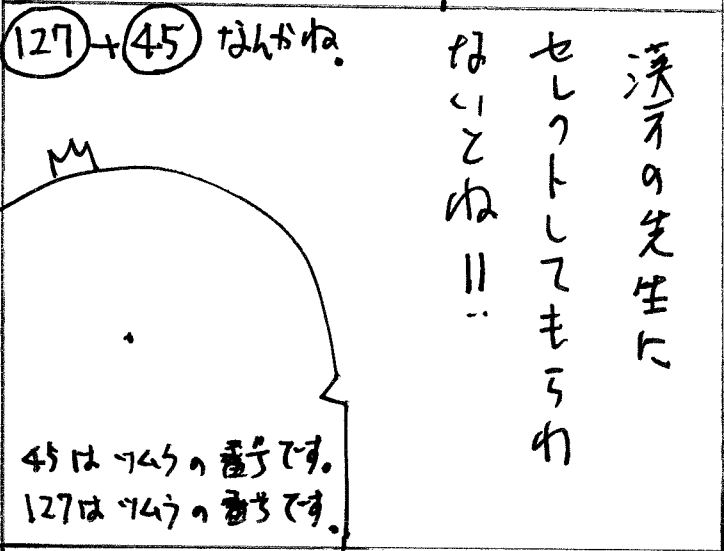 漢方の先生に
セレクトしてもらわ
ないとね!!
127+45 なんかね。
45はツムラの番号です。
127はツムラの番号です。